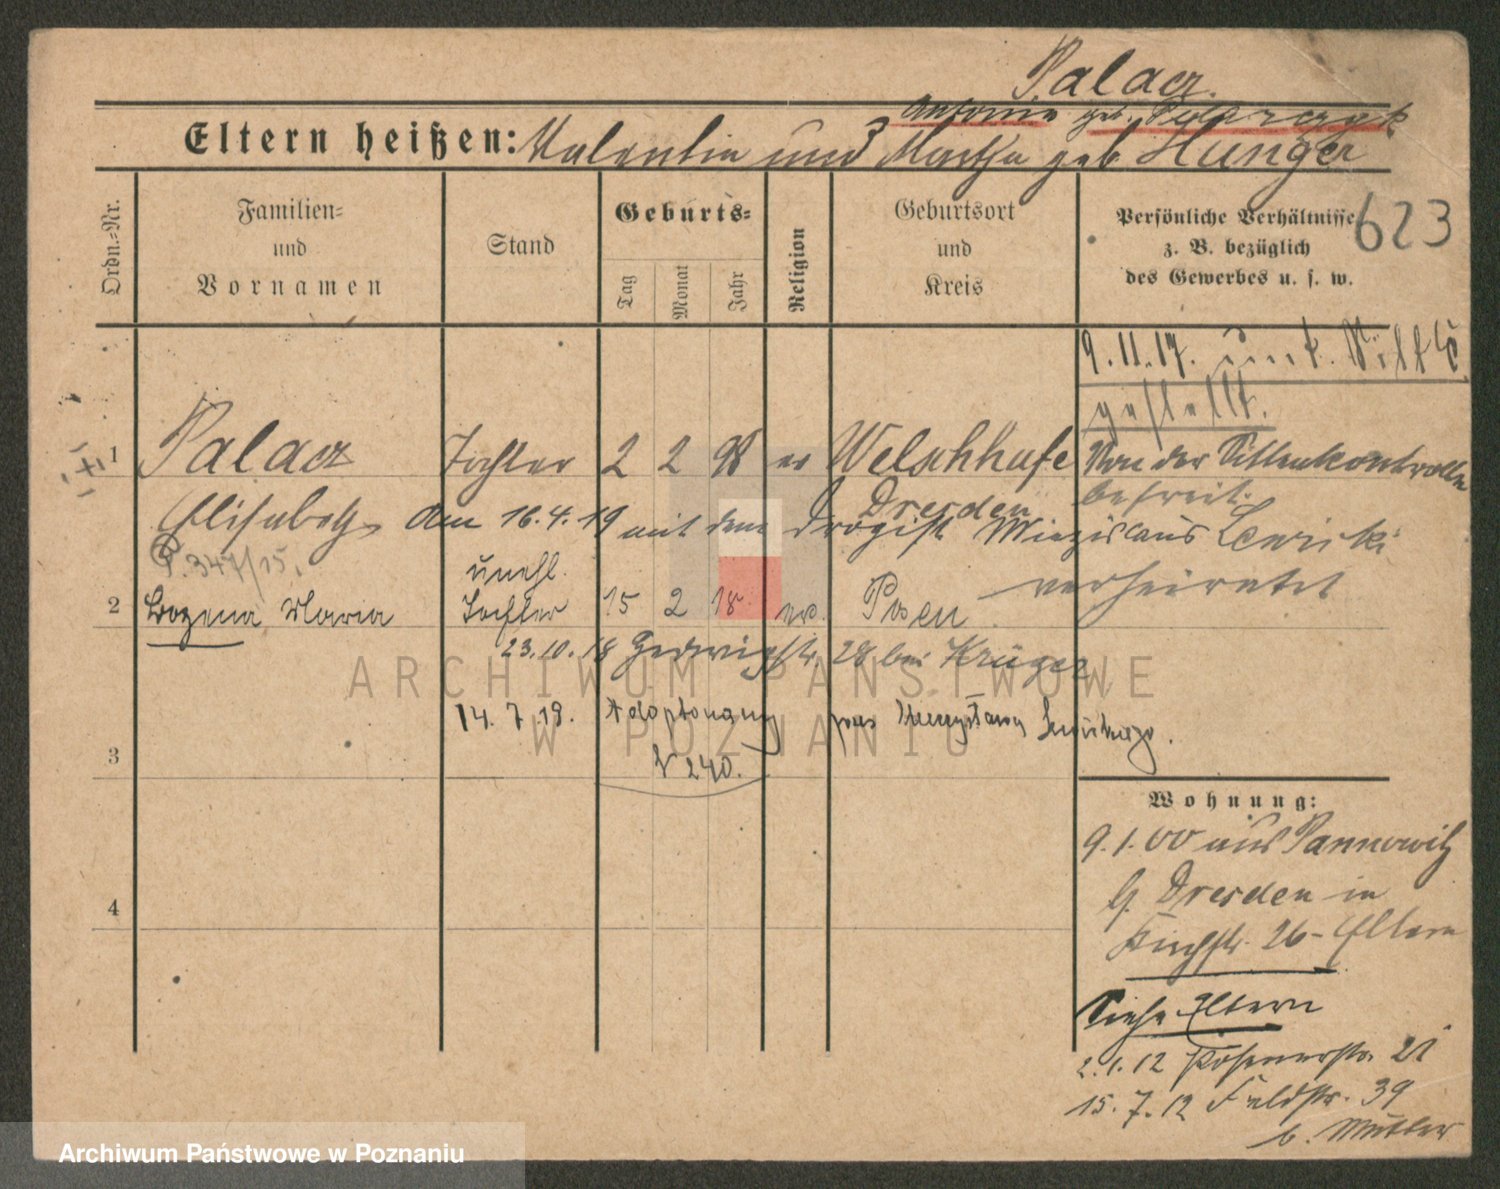 Palacz.
Antonie geb. Pylarczyk
Eltern heißen: Valentin und Martha geb Hunger
Ordn.=Nr.
Familien=
und
Vornamen
Stand
Geburts=
Tag
Monat
Jahr
Religion
Geburtsort
und
Kreis
Persönliche Verhältnisse
z. B. bezüglich
des Gewerbes u. s. w.
623
9.11.17. unt.
gestellt.
1 Palacz Tochter 2 2 98 Welschhufe
Von der Sittenkontrolle
befreit.
Dresden
Elisabeth am 16.4.19 mit dem Drogist Miezislaus Lewicki
verheiratet
P. 347/15.
unehl.
2 Bozena Maria Tochter 15 2 18 Posen
23.10.18 Hedwigstr. 28 bei Krüger
14.7.19. Adoptowany przez Mieczysława
N 240.
3
4
Wohnung:
9.1.00 aus Pannewitz
b. Dresden in
Kirchstr. 26 - Eltern
Siehe Eltern
2.1.12 Posenerstr. 21
15.7.12 Feldstr. 39
b. Mutter
ARCHIWUM PAŃSTWOWE
W POZNANIU
Archiwum Państwowe w Poznaniu